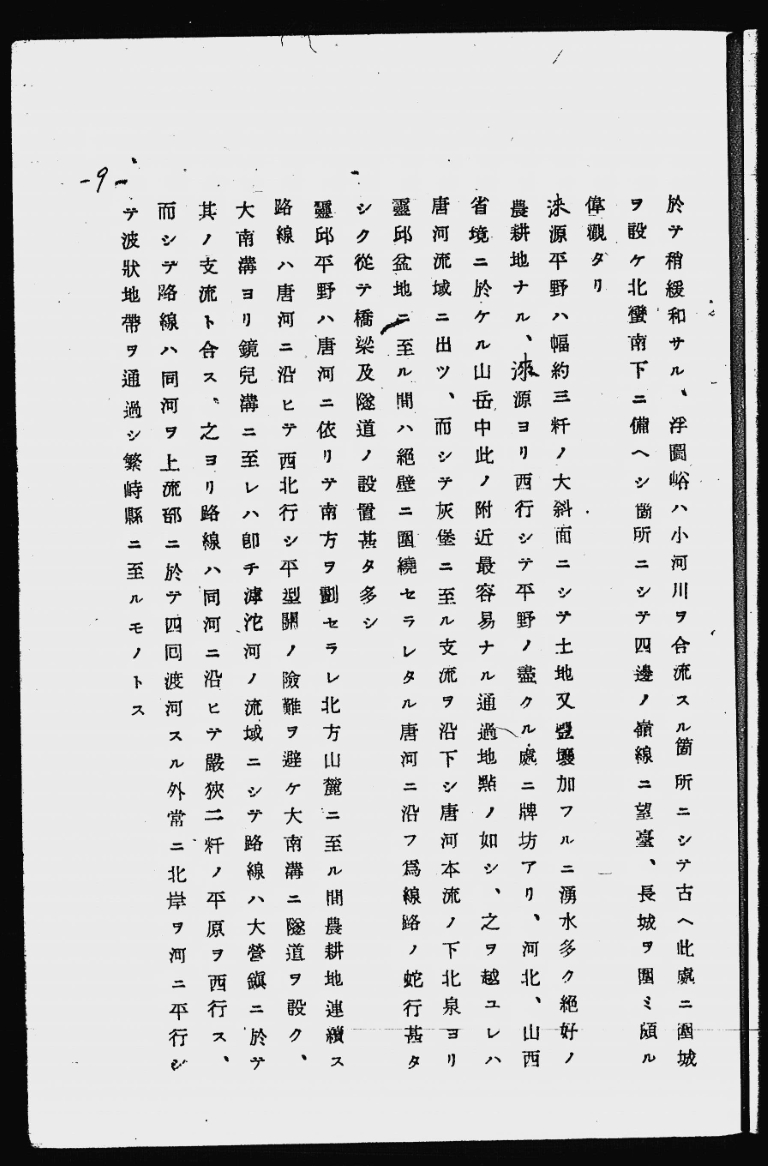 -9-
於テ稍緩和サル、浮圖峪ハ小河川ヲ合流スル箇所ニシテ古ヘ此處ニ圍城
ヲ設ケ北蠻南下ニ備ヘシ箇所ニシテ四邊ノ嶺線ニ望臺、長城ヲ圍ミ頗ル
偉觀タリ
淶源平野ハ幅約三粁ノ大斜面ニシテ土地又豐壤加フルニ湧水多ク絕好ノ
農耕地ナル、淶源ヨリ西行シテ平野ノ盡クル處ニ牌坊アリ、河北、山西
省境ニ於ケル山岳中此ノ附近最容易ナル通過地點ノ如シ、之ヲ越ユレハ
唐河流域ニ出ツ、而シテ灰堡ニ至ル支流ヲ沿下シ唐河本流ノ下北泉ヨリ
靈邱盆地ニ至ル間ハ絕壁ニ圍繞セラレタル唐河ニ沿フ爲線路ノ蛇行甚タ
シク從テ橋梁及隧道ノ設置甚タ多シ
靈邱平野ハ唐河ニ依リテ南方ヲ劃セラレ北方山麓ニ至ル間農耕地連續ス
路線ハ唐河ニ沿ヒテ西北行シ平型關ノ險難ヲ避ケ大南溝ニ隧道ヲ設ク、
大南溝ヨリ鏡兒溝ニ至レハ卽チ滹沱河ノ流域ニシテ路線ハ大營鎭ニ於テ
其ノ支流ト合ス、之ヨリ路線ハ同河ニ沿ヒテ嚴狹二粁ノ平原ヲ西行ス、
而シテ路線ハ同河ヲ上流部ニ於テ四囘渡河スル外常ニ北岸ヲ河ニ平行シ
テ波狀地帶ヲ通過シ繁峙縣ニ至ルモノトス